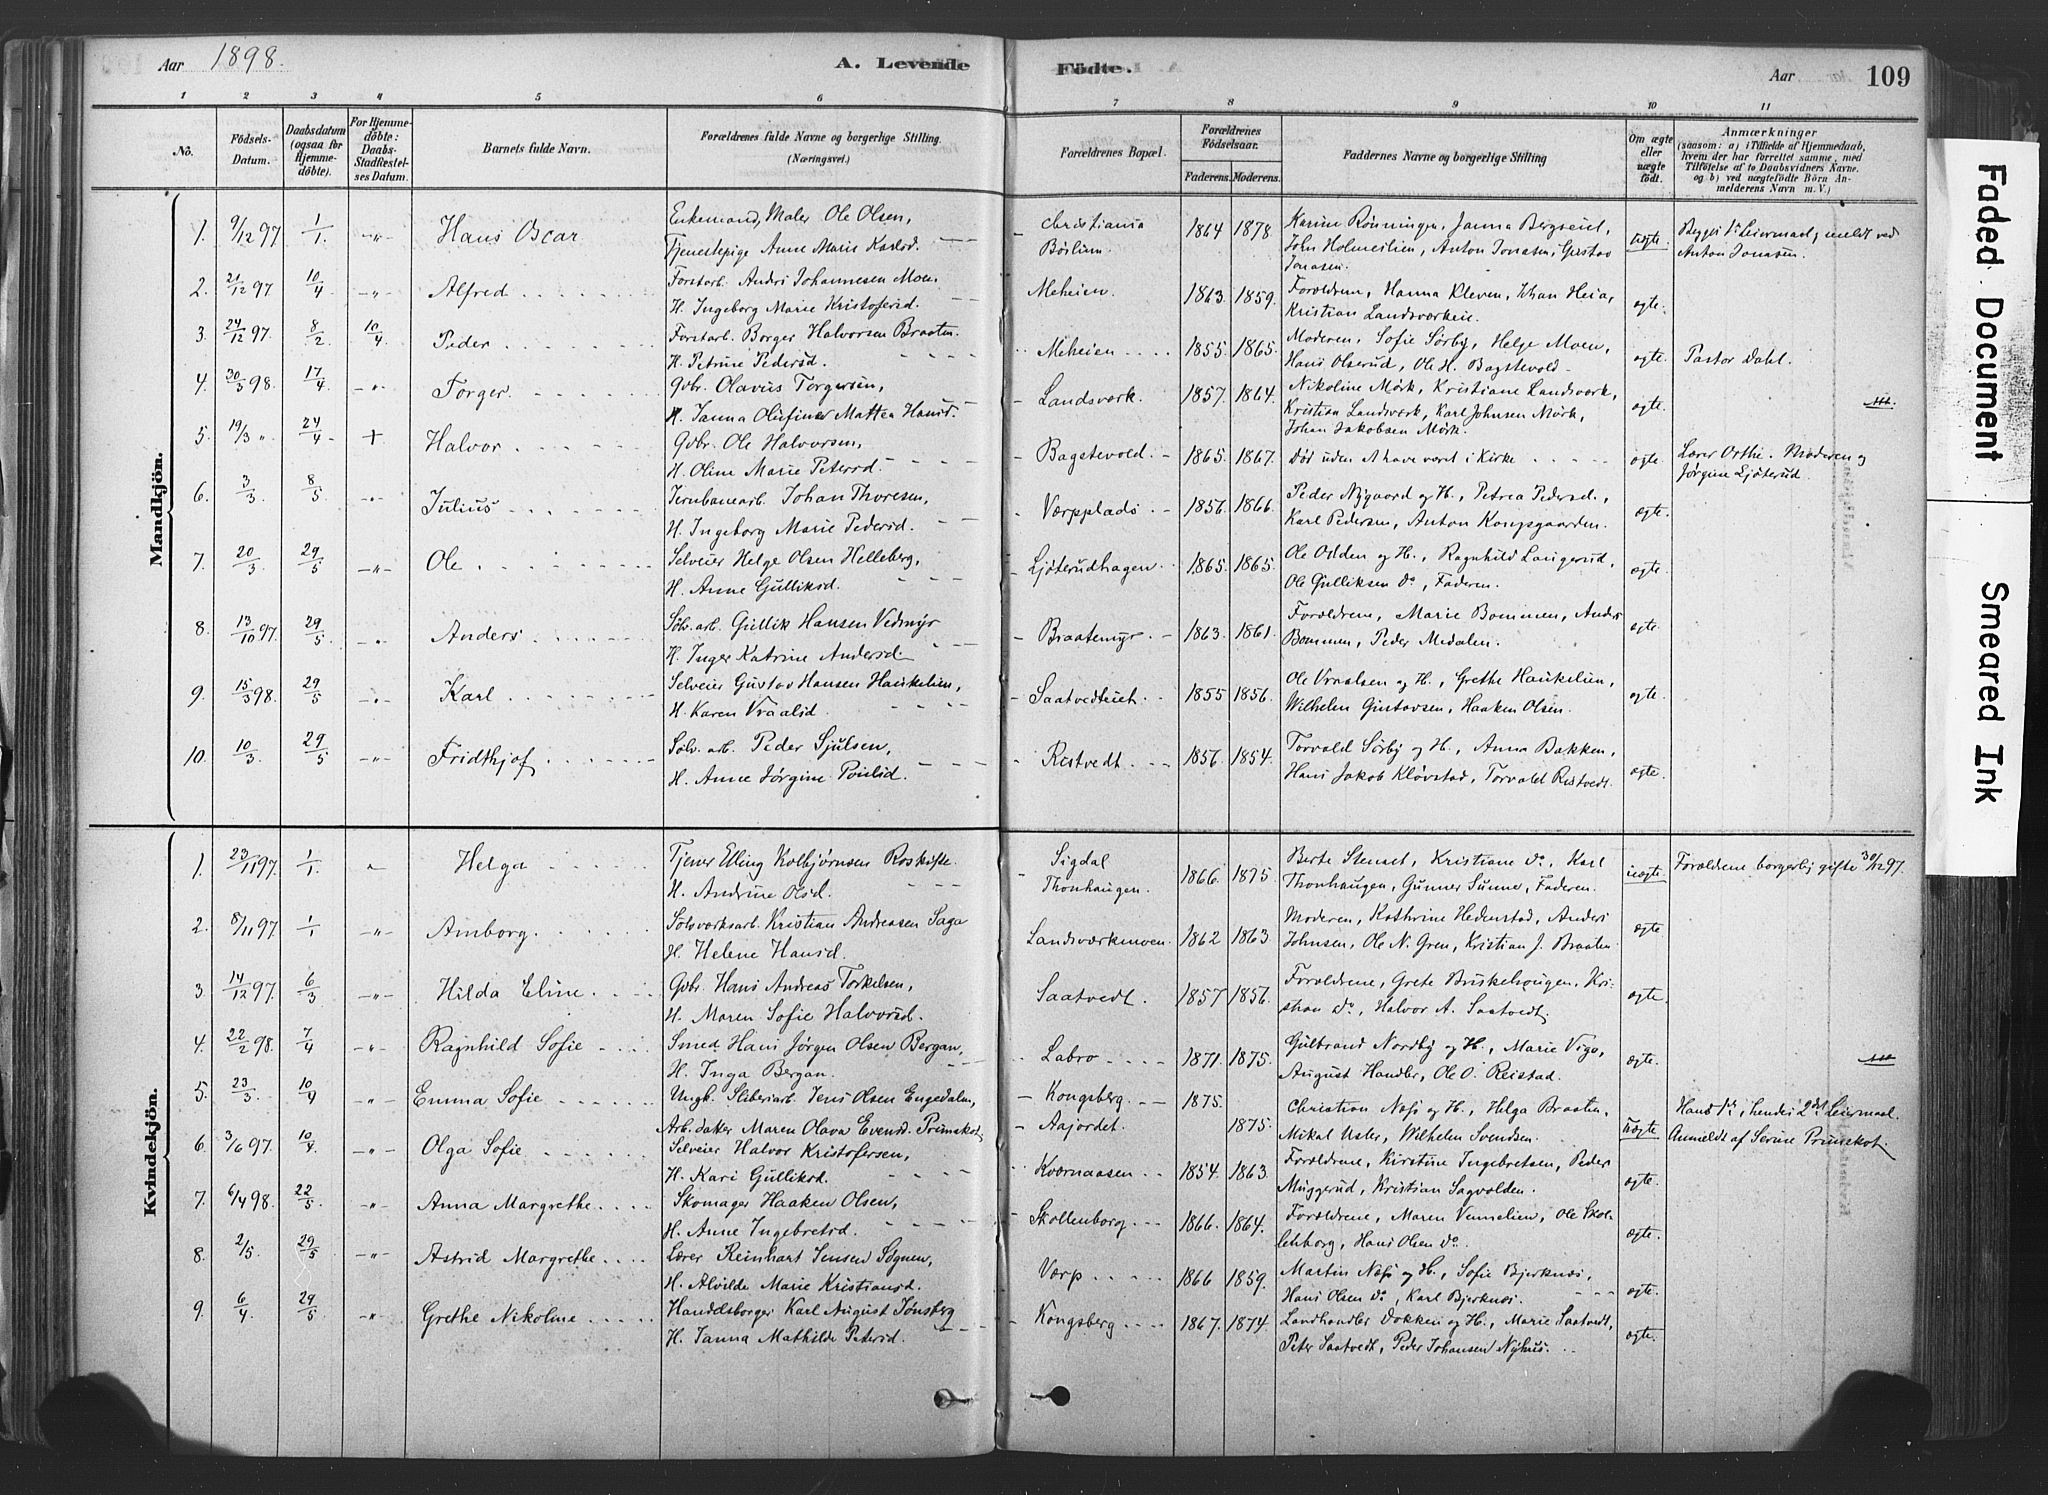 Aar 1898.
A. Levende Födte.
Aar
109
1 2 3 4 5 6 7 8 9 10 11
No.
Födsels-Datum.
Daabsdatum (ogsaa for Hjemmedöbte).
For Hjemmedöbte: Daabs-Stadfæstelses Datum.
Barnets fulde Navn.
Forældrenes fulde Navne og borgerlige Stilling. (Næringsvei.)
Forældrenes Bopæl.
Forældrenes Födselsaar.
Faderens. Moderens.
Faddernes Navne og borgerlige Stilling
Om ægte eller uægte födt.
Anmærkninger
(saasom: a) i Tilfælde af Hjemmedaab, hvem der har forrettet samme, med Tilföielse af to Daabsvidners Navne. og b) ved uægtefödte Börn Anmelderens Navn m. V.)
Mandkjön.
1. 9/12 97 1/1 -"- Hans Oscar
Enkemand, Maler Ole Olsen,
Tjenestepige Anne Marie Karlsd.
Christiania
Börlum
1864 1878
Karine Rönningen, Janna Bergseid,
John Holmeilien, Anton Jonasen, Gustav
Jonasen.
uægte. Begges 1ste Leiermaal, meldt ved
Anton Jonasen.
2. 21/12 97 10/4 -"- Alfred
Forstarb. Anders Johannesen Moen
H. Ingeborg Marie Kristofersd.
Meheien 1863. 1859.
Forældrene, Hanna Kleven, Johan Heia,
Kristian Landsværkeie.
ægte.
3. 24/12 97. 8/2 10/4 Peder
Forstarb. Borger Halvorsen Braaten.
H. Petrine Pedersd.
Meheien 1855. 1865.
Moderen, Sofie Sörby, Helge Moen,
Hans Olserud, Ole H. Bagstevold.
ægte. Pastor Dahl.
4. 30/3 98. 17/4 -"- Torger
Gbr. Olavus Torgersen,
H. Janna Olufine Mathea Hansd.
Landsverk. 1857. 1864.
Nikoline Mörk, Kristiane Landsverk,
Kristian Landsverk, Karl Johnsen Mörk,
Johan Jakobsen Mörk.
ægte.
5. 19/3 " 24/4 + Halvor
Gbr. Ole Halvorsen,
H. Oline Marie Petersd.
Bagstevold. 1865. 1867.
Död uden at have været i Kirke
ægte. Lærer Orthe. Moderen og
Jørgine Ljøterud.
6. 3/3 8/5 -"- Julius
Jernbanearb. Johan Thoresen,
H. Ingeborg Marie Pedersd.
Værpplads 1856. 1866.
Peder Nygaard og H., Petrea Pedersd.
Karl Pedersen, Anton Kongsgaarden.
ægte.
7. 20/3 29/5 -"- Ole
Selveier Helge Olsen Helleberg,
H. Anne Gulliksd.
Ljøterudhagen 1865. 1865.
Ole Odden og H., Ragnhild Langerud,
Ole Gulliksen do, Faderen.
ægte.
8. 13/10 97. 29/5 -"- Anders
Sølv. arb. Gullik Hansen Vedmyr
H. Inger Katrine Andersd.
Braatemyr. 1863. 1861.
Forældrene, Marie Bommen, Anders
Bommen, Peder Medalen.
ægte.
9. 15/3 98. 29/5 -"- Karl
Selveier Gustav Hansen Haukelien,
H. Karen Vraalsd.
Saatvedteich. 1855 1856.
Ole Vraalsen og H., Grethe Haukelien,
Wilhelm Gustavsen, Haaken Olsen.
ægte.
10. 10/3 29/5 -"- Fridthjof
Sølv. arb. Peder Sjulsen,
H. Anne Jørgine Poulsd.
Restvedt. 1856. 1854.
Torvald Sörby og H., Anna Bakken,
Hans Jakob Kløvstad, Torvald Restvedt.
ægte.
Kvindekjön.
1. 23/11 97. 1/1 " Helga
Tjener Elling Kolbjørnsen
H. Andrine Olsd.
Sigdal
Thonhaugen. 1866. 1875.
Berte Stenset, Kristiane do, Karl
Thonhaugen, Gunner Sunne, Faderen.
uægte. Forældrene borgerlig gifte 30/12 97.
2. 8/11 97 1/1 -"- Amborg.
Sølvværksarb. Kristian Andreasen Saga
H. Helene Hansd.
Landsværkmoen. 1862 1863
Moderen, Kathrine Hedenstad, Anders
Johnsen, Ole N. Gren, Kristian J. Braaten
ægte.
3. 14/12 97. 6/3 -"- Hilda Eline.
Gbr. Hans Andreas Torkelsen,
H. Maren Sofie Halvorsd.
Saatvedt. 1857 1856.
Forældrene, Grete Bruskehougen, Kri-
stian do, Halvor A. Saatvedt,
ægte.
4. 22/2 98. 7/4 -"- Ragnhild Sofie
Smed Hans Jørgen Olsen Bergan,
H. Inga Bergan.
Labro 1871. 1875.
Gulbrand Nordby og H., Marie Vigo,
August Handler, Ole O. Reistad.
ægte.
5. 23/3. 10/4 -"- Emma Sofie
Ungk. Sliberiarb. Jens Olsen Engedalen,
Arb.saker Maren Olava Evensd. Prinskot
Kongsberg. 1875.
Aajordet. 1875.
Christian Næss og H., Helga Braaten,
Mikal Usler, Wilhelm Svendsen.
uægte. Hans 1ste, hendes 2det Leiermaal.
Anmeldt af Serine Prinskot.
6. 3/6 97. 10/4 -"- Olga Sofie
Selveier Halvor Kristofersen,
H. Kari Gulliksd.
Kvernaasen 1854. 1863
Forældrene, Kirstine Ingebretsen, Peder
Muggerud, Kristian Sagvolden.
ægte.
7. 6/4 98. 22/5 -"- Anna Margrethe.
Skomager Haaken Olsen,
H. Anne Ingebretsd.
Skollenborg. 1866. 1864.
Forældrene, Maren Vennelien, Ole Skol-
lenborg, Hans Olsen do.
ægte.
8. 2/5. 29/5 -"- Astrid Margrethe.
Lærer Reinhart Jensen Sognen,
H. Alvilde Marie Kristiansd.
Værp 1866 1859.
Martin Næss og H., Sofie Bjerknæs,
Hans Olsen do, Karl Bjerknæs.
ægte.
9. 6/4 29/5 -"- Grethe Nikoline
Handelsborger Karl August Jønsberg
H. Janna Mathilde Petersd.
Kongsberg 1867. 1874.
Landhandler Dokken og H., Marie Saatvedt,
Peter Saatvedt, Peder Johansen Nyhus.
ægte.
Faded Document
Smeared Ink